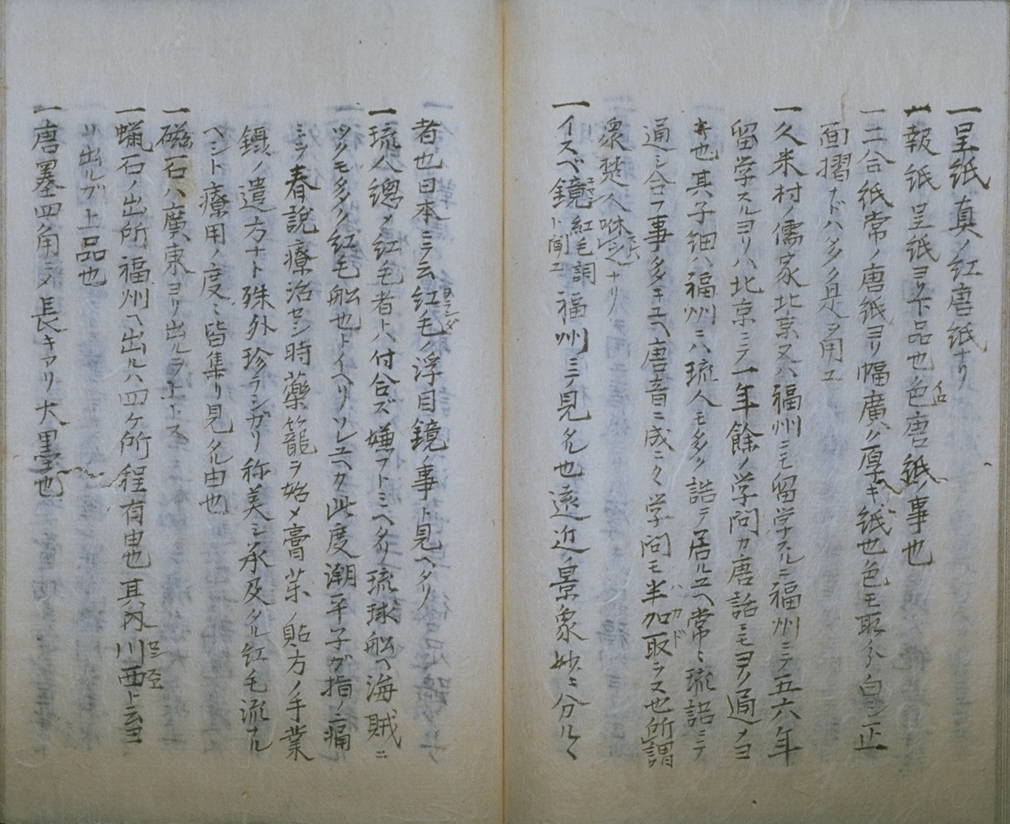 一呈紙真ノ紅唐紙ナリ
一報紙呈紙ヨリ下品也色唐紙ノ事也
一二合紙常ノ唐紙ヨリ幅廣ク厚キ紙也色モ取分白シ正
面摺ナドハ多ク是ヲ用ユ
一久米村ノ儒家北京又ハ福州ニモ留学スルニ福州ニテ五六年
留学スルヨリハ北京ニテ一年餘ノ学問カ唐話ニモヨク通ノヨ
キ也其子細ハ福州ニハ琉人モ多ク詰テ居ル故ヘ常ニ琉語ニテ
通シ合フ事多キユヘ唐音ニ成ニクク学問モ半加取ラス也所謂
衆楚人咻之ナリ
一イスベ鏡紅毛詞ト聞エ福州ニテ見タル也遠近ノ景象妙ニ分ルル
者也日本ニテ云紅毛ノ浮目鏡事ト見ヘタリ
一琉人總メ紅毛者トハ付合ズ嫌フトミヘタリ琉球船ヘ海賊ニ
ツクモ多ク紅毛船也トイヘリソレユヘカ此度潮平子ガ指ノ痛
ミヲ春説療治セシ時藥籠ヲ始メ膏薬ノ貼方ノ手業
鋏ノ遣方ナト殊外珍ラシガリ称美シ承及タル紅毛流ナル
ヘシト療用ノ度ニ皆集リ見タル由也
一磁石ハ廣東ヨリ出ルヲ上トス
一蠟石ノ出所福州ヘ出ルハ四ケ所程有由也其内川西ト云ヨ
リ出ルガ上品也
一唐墨四角ニテ長キアリ大墨也